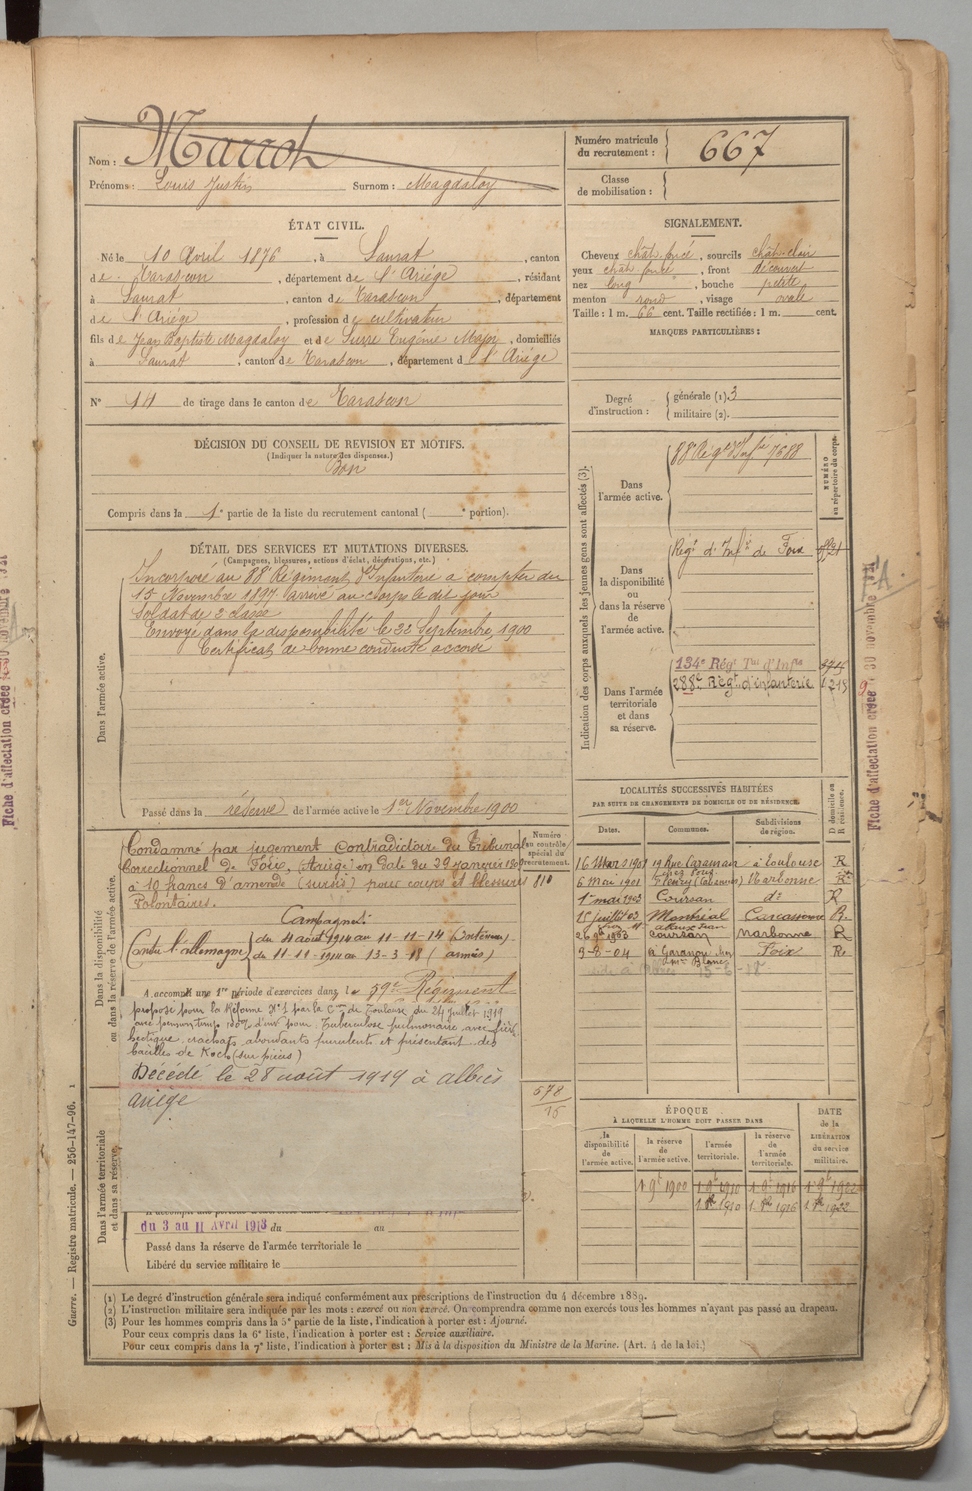 Nom : Marrot
Prénoms : Louis Justin Surnom : Magdaloy
Numéro matricule du recrutement : 667
Classe de mobilisation :
ÉTAT CIVIL.
Né le 10 Avril 1876, à Saurat, canton
de Tarascon, département de l'Ariège, résidant
à Saurat, canton de Tarascon, département
de l'Ariège, profession de cultivateur
fils de Jean Baptiste Magdaloy et de Surre Eugénie Major, domiciliés
à Saurat, canton de Tarascon, département de l'Ariège
N° 14 de tirage dans le canton de Tarascon
SIGNALEMENT.
Cheveux chât. foncé, sourcils chât. clair
yeux chât. foncé, front découvert
nez long, bouche petite
menton rond, visage ovale
Taille : 1 m. 66 cent. Taille rectifiée : 1 m. cent.
MARQUES PARTICULIÈRES :
Degré d'instruction : générale (1). 3
militaire (2).
DÉCISION DU CONSEIL DE REVISION ET MOTIFS.
(Indiquer la nature des dispenses.)
Bon
Compris dans la 1e partie de la liste du recrutement cantonal ( e portion).
DÉTAIL DES SERVICES ET MUTATIONS DIVERSES.
(Campagnes, blessures, actions d'éclat, décorations, etc.)
Dans l'armée active.
Incorporé au 88e Régiment d'Infanterie a compter du
15 Novembre 1897 arrivé au corps le dit jour
Soldat de 2e classe
Envoyé dans la disponibilité le 22 Septembre 1900
Certificat de bonne conduite accordé
Passé dans la réserve de l'armée active le 1er Novembre 1900
Indication des corps auxquels les jeunes gens sont affectés (3).
NUMÉRO au répertoire du corps.
Dans l'armée active.
88e Régt d'Infie 7688
Dans la disponibilité ou dans la réserve de l'armée active.
Régt d'Infie de Foix
Dans l'armée territoriale et dans sa réserve.
134e Régt Tal d'Infie
288e Régt d'infanterie
Dans la disponibilité ou dans la réserve de l'armée active.
Numéro au contrôle spécial du recrutement.
Condamné par jugement contradictoire du Tribunal
Correctionnel de Foix, (Ariège) en date du 29 janvier
à 10 francs d'amende (sursis) pour coups et blessures 810
volontaires.
Campagnes
Contre l'allemagne du 4 août 1914 au 11-11-14 (Intérieur)
du 11-11-1914 au 13-3-18 (armées)
A accompli une 1re période d'exercices dans le 59e Régiment
proposé pour la Réforme N° 1 par la Con de Toulouse du 24 juillet 1919
avec pension temp. 100% d'inv pour Tuberculose pulmonaire avec fièvre
hectique, crachats abondants purulents et présentant des
bacilles de Koch (sur pièces)
Décédé le 28 août 1919 à albiès
ariège
578
15
Dans l'armée territoriale et dans sa réserve.
du 3 au 11 Avril 1913 du au
Passé dans la réserve de l'armée territoriale le
Libéré du service militaire le
LOCALITÉS SUCCESSIVES HABITÉES
PAR SUITE DE CHANGEMENTS DE DOMICILE OU DE RÉSIDENCE.
D domicile ou R résidence.
Dates. Communes. Subdivisions de région.
16 Mars 1901 19 Rue Caraman à Toulouse R
6 Mai 1901 Fleury Narbonne R
1er mai 1903 Coursan do R
15 juillet 03 Montréal Carcassonne R
1903 coursan narbonne R
9-8-04 à Garanou Foix R
ÉPOQUE
À LAQUELLE L'HOMME DOIT PASSER DANS
la disponibilité de l'armée active.
la réserve de l'armée active.
l'armée territoriale.
la réserve de l'armée territoriale.
DATE de la LIBÉRATION du service militaire.
1 9e 1900 1 9e 1910 1 9e 1916 1 9e 1922
1 8e 1910 1 8e 1916 1 8e 1922
(1) Le degré d'instruction générale sera indiqué conformément aux prescriptions de l'instruction du 4 décembre 1889.
(2) L'instruction militaire sera indiquée par les mots : exercé ou non exercé. On comprendra comme non exercés tous les hommes n'ayant pas passé au drapeau.
(3) Pour les hommes compris dans la 5e partie de la liste, l'indication à porter est : Ajourné.
Pour ceux compris dans la 6e liste, l'indication à porter est : Service auxiliaire.
Pour ceux compris dans la 7e liste, l'indication à porter est : Mis à la disposition du Ministre de la Marine. (Art. 4 de la loi.)
Guerre. — Registre matricule. — 256-147-96. 1
Fiche d'affectation créée 30 novembre